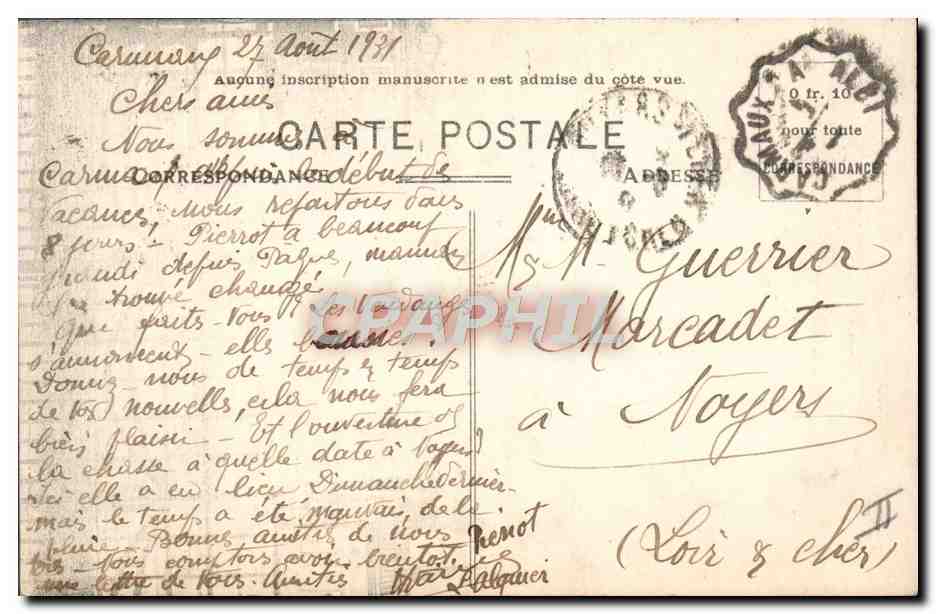 Carmaux 27 Août 1931
Aucune inscription manuscrite n'est admise du côté vue.
Chers amis
CARTE POSTALE
Nous sommes à
Carmaux depuis le début des
CORRESPONDANCE
ADRESSE
vacances, nous repartons dans
8 jours. Pierrot a beaucoup
grandi depuis Pâques,
trouvé changé.
Que faites-vous? Les vendanges
s'annoncent-elles
Donnez-nous de temps en temps
de vos nouvelles, cela nous fera
bien plaisir - Et l'ouverture de
la chasse à quelle date à Noyers?
Ici elle a eu lieu Dimanche dernier
mais le temps a été mauvais, de la
pluie. Bonnes amitiés de nous
tous comptons avoir bientôt
une lettre de vous. Amitiés
Pierrot
0 fr. 10
pour toute
CORRESPONDANCE
CARMAUX À ALBI
NOYERS S/ CHER
LOIR & CHER
Mr Mme Guerrier
Marcadet
à Noyers
(Loir & Cher)
II
CPAPHIL